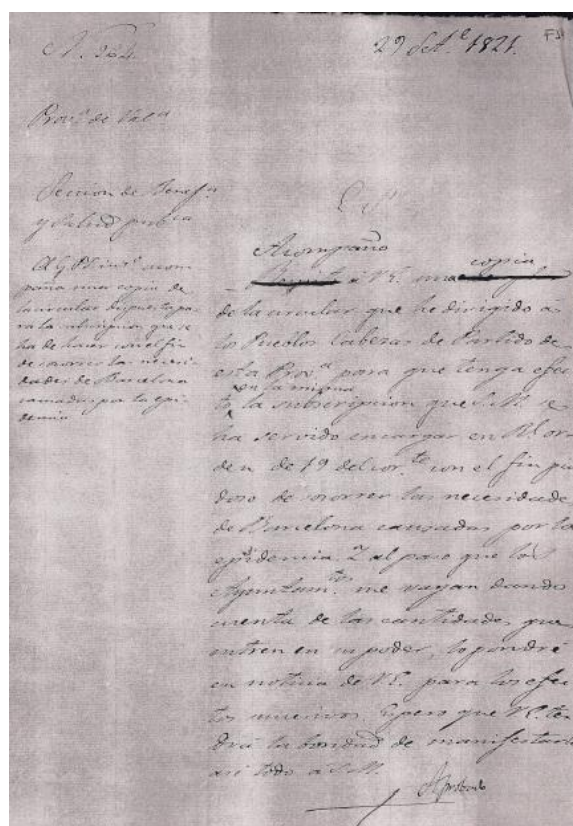 N. 324
29 Set.e 1821.
Prov.a de Val.a
Seccion de Benef.a
y Salud pub.ca
El G. P. inter.o acom
paña una copia de
la circular dispuesta pa-
ra la subscripcion que se
ha de hacer con el fin
de socorrer las necesi-
dades de Barcelona
causadas por la epi-
demia
E. S.
Acompaño copia
á V.E. una
de la circular que he dirigido á
los Pueblos Cabezas de Partido de
esta Prov.a para que tenga efec
en la misma
to la subscripcion que S.M. se
ha servido encargar en Rl. or-
den de 19 del cor.te con el fin pia
doso de socorrer las necesidade
de Barcelona causadas por la
epidemia. Y al paso que los
Ayuntam.tos me vayan dando
cuenta de las cantidades que
entren en su poder, lo pondré
en noticia de V.E. para los efec
tos . Espero que V.E. ten
drá la bondad de manifestarlo
así todo á S.M.